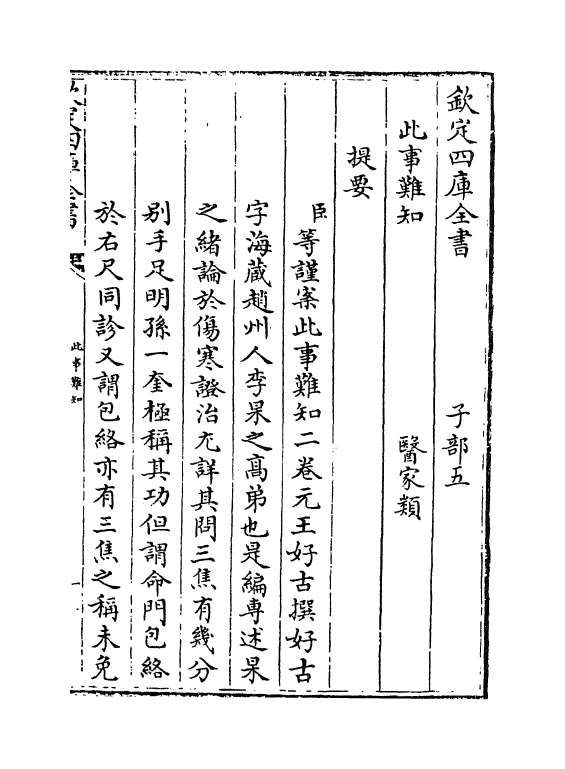 欽定四庫全書　子部五
此事難知　醫家類
提要
臣等謹案此事難知二卷元王好古撰好古
字海藏趙州人李杲之髙弟也是編専述杲
之緒論於傷寒證治尤詳其問三焦有幾分
别手足明孫一奎極稱其功但謂命門包絡
於右尺同診又謂包絡亦有三焦之稱未免
欽定四庫全書
此事難知
一